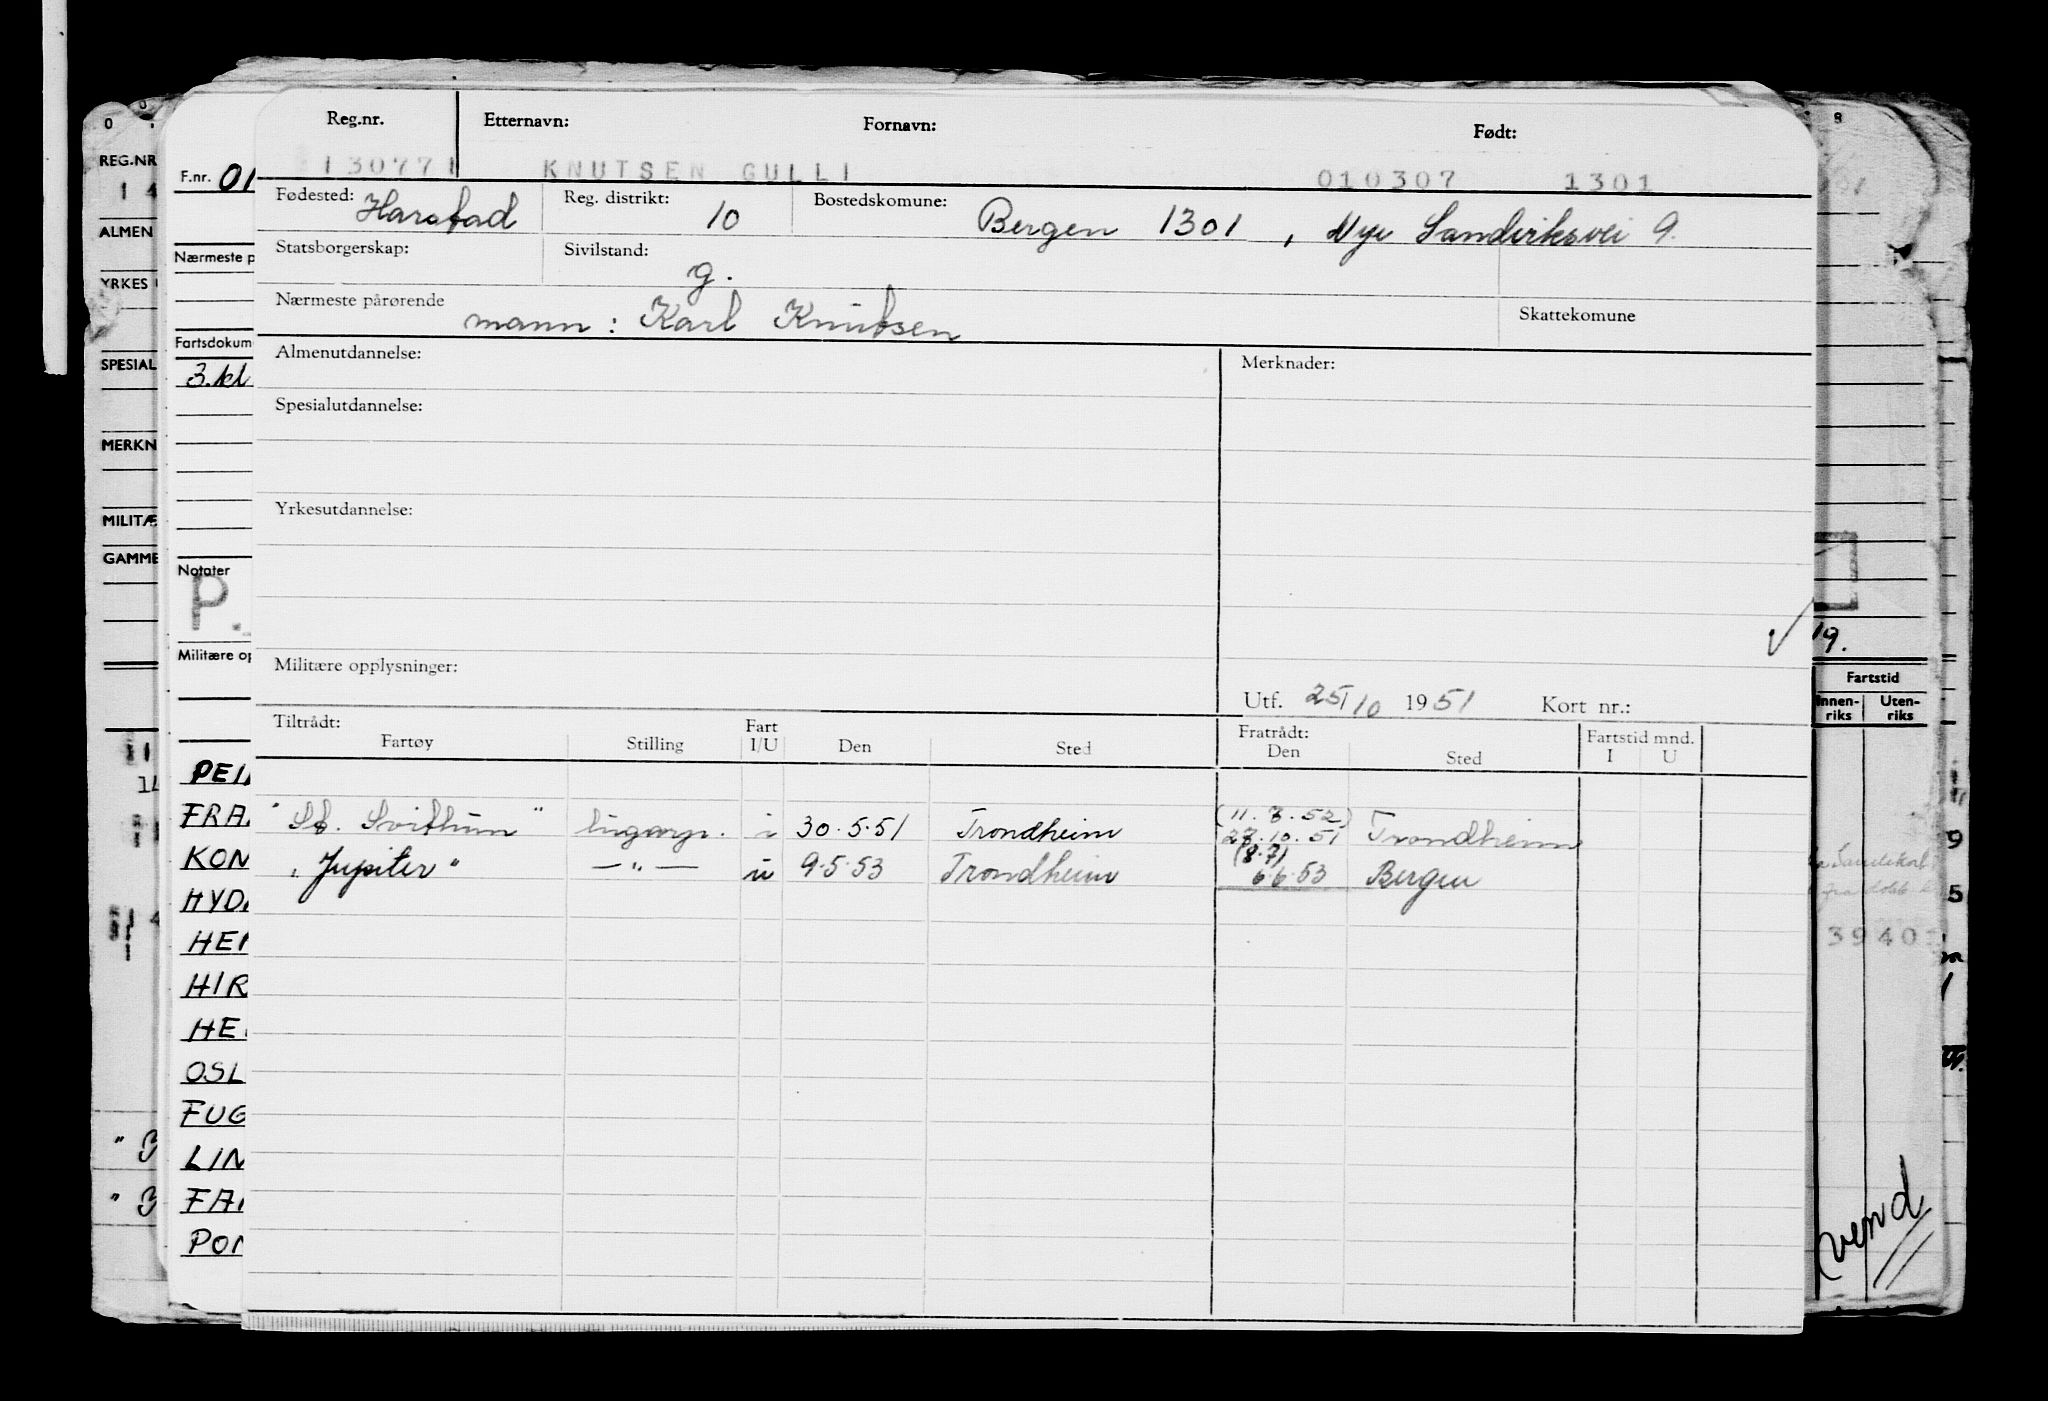 Reg.nr. Etternavn: Fornavn: Født:
130771 KNUTSEN GULLI 010307 1301
Fødested: Harstad Reg. distrikt: 10 Bostedskomune: Bergen 1301, Nye Sandviksvei 9.
Statsborgerskap: Sivilstand: g.
Nærmeste pårørende mann: Karl Knutsen Skattekomune
Almenutdannelse: Merknader:
Spesialutdannelse:
Yrkesutdannelse:
Militære opplysninger:
Utf. 25/10 1951 Kort nr.:
Tiltrådt: Fratrådt:
Fartøy Stilling Fart I/U Den Sted Den Sted Fartstid mnd. I U
(11.3.52)
"St. Svithun" lugarp. i 30.5.51 Trondheim 27.10.51 Trondheim
(8.7)
"Jupiter" —"— u 9.5.53 Trondheim 6.6.53 Bergen
F.nr. 01
Nærmeste p
Fartsdokum
3.kl
Notater
P.
Militære op
PEL
FRA
KON
HYD
HEN
HIR
HE
OSL
FUG
LIN
FAN
PON
REG.NR
14
ALMEN
YRKES
SPESIAL
MERKN
MILITÆ
GAMME
19.
Fartstid
Innen-riks Uten-riks
3940
vend